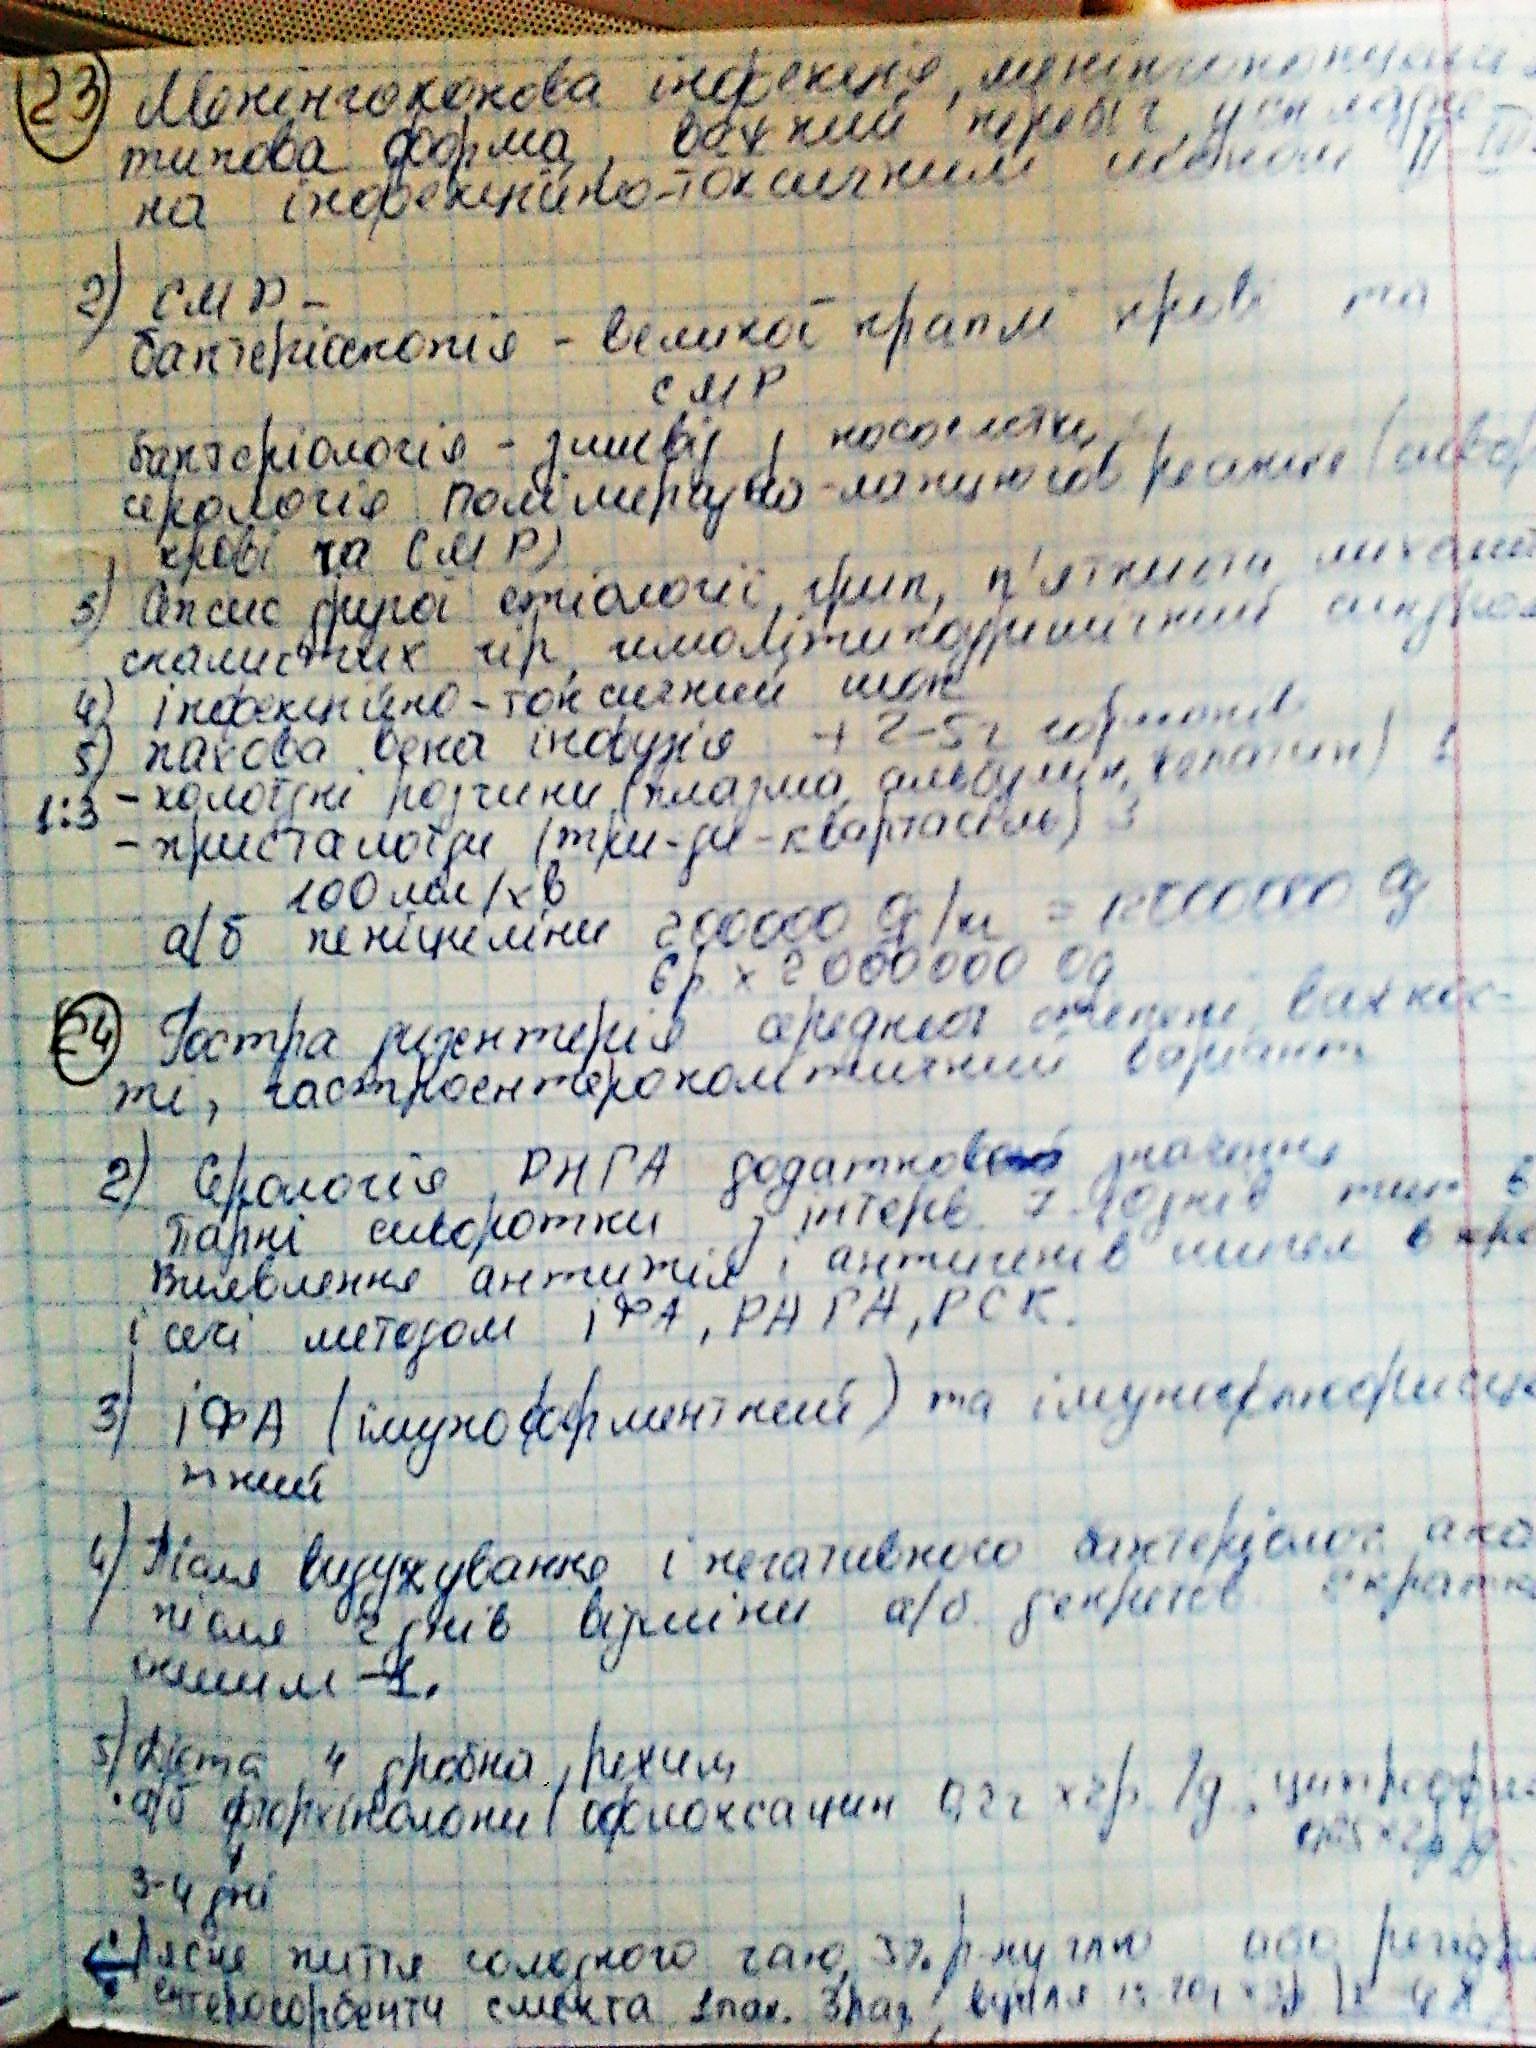 23 Менінгококова інфекція,
типова форма, важкий перебіг, ускладне-
на інфекційно-токсичним шоком II-III
2) СМР -
бактеріоскопія - великої краплі крові та
СМР
бактеріологія - змивів з носоглотки,
серологія полімеразно-ланцюгов реакція (сивор
крові та СМР)
3) Сепсис другої етіології, грип, п'ятниста лихоман
скалистих гір, гемолітикоуремічний синдром
4) інфекційно-токсичний шок
5) пахова вена інфузія + 2-5г гормонів
1:3 - колоїдні розчини (плазма, альбумін, ) 1
- кристалоїди (три-ди-квартасіль) 3
100 мл/хв
а/б пеніциліни 200000 Од/кг = 12000000 Од
6р. х 2000000 Од
24 Гостра дизентерія середньої степені важкос-
ті, гастроентероколітичний варіант
2) Серологія, РНГА додаткове значення
Парні сиворотки з інтерв. 7-10днів
Виявлення антитіл і антигенів шигел в кро
і сечі методом ІФА, РАГА, РСК.
3) ІФА (імуноферментний) та імунофлюоресце
тний
4) Після видужування і негативного бактеріолог. анал
після 2 днів відміни а/б. декретов. 2 кратно
іншим -1.
5) Дієта 4 дробна, режим
· а/б фторхінолони (офлоксацин 0,2г х2р./д.; ципрофл
0,25 х 2р/д.
3-4 дні
Рясне пиття солодкого чаю, 5% р-ну глю або регідр
ентеросорбенти смекта 1пак. 3раз,